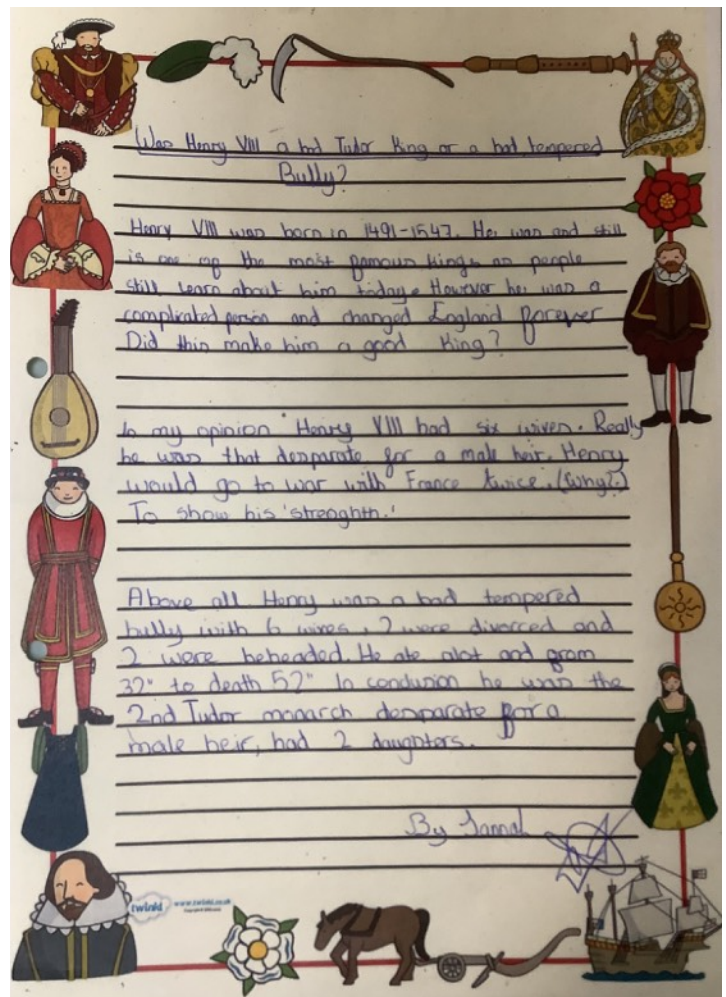 Was Henry VIII a bad Tudor King or a bad tempered
Bully?
Henry VIII was born in 1491-1547. He was and still
is one of the most famous kings as people
still learn about him today. However he was a
complicated person and changed England forever
Did this make him a good King?
In my opinion Henry VIII had six wives. Really
he was that desparate for a male heir. Henry
would go to war with France twice. (Why?)
To show his 'strenghth.'
Above all Henry was a bad tempered
bully with 6 wives, 2 were divorced and
2 were beheaded. He ate alot and from
32" to death 52" In conclusion he was the
2nd Tudor monarch desparate for a
male heir, had 2 daughters.
By Jannah
twinkl www.twinkl.co.uk